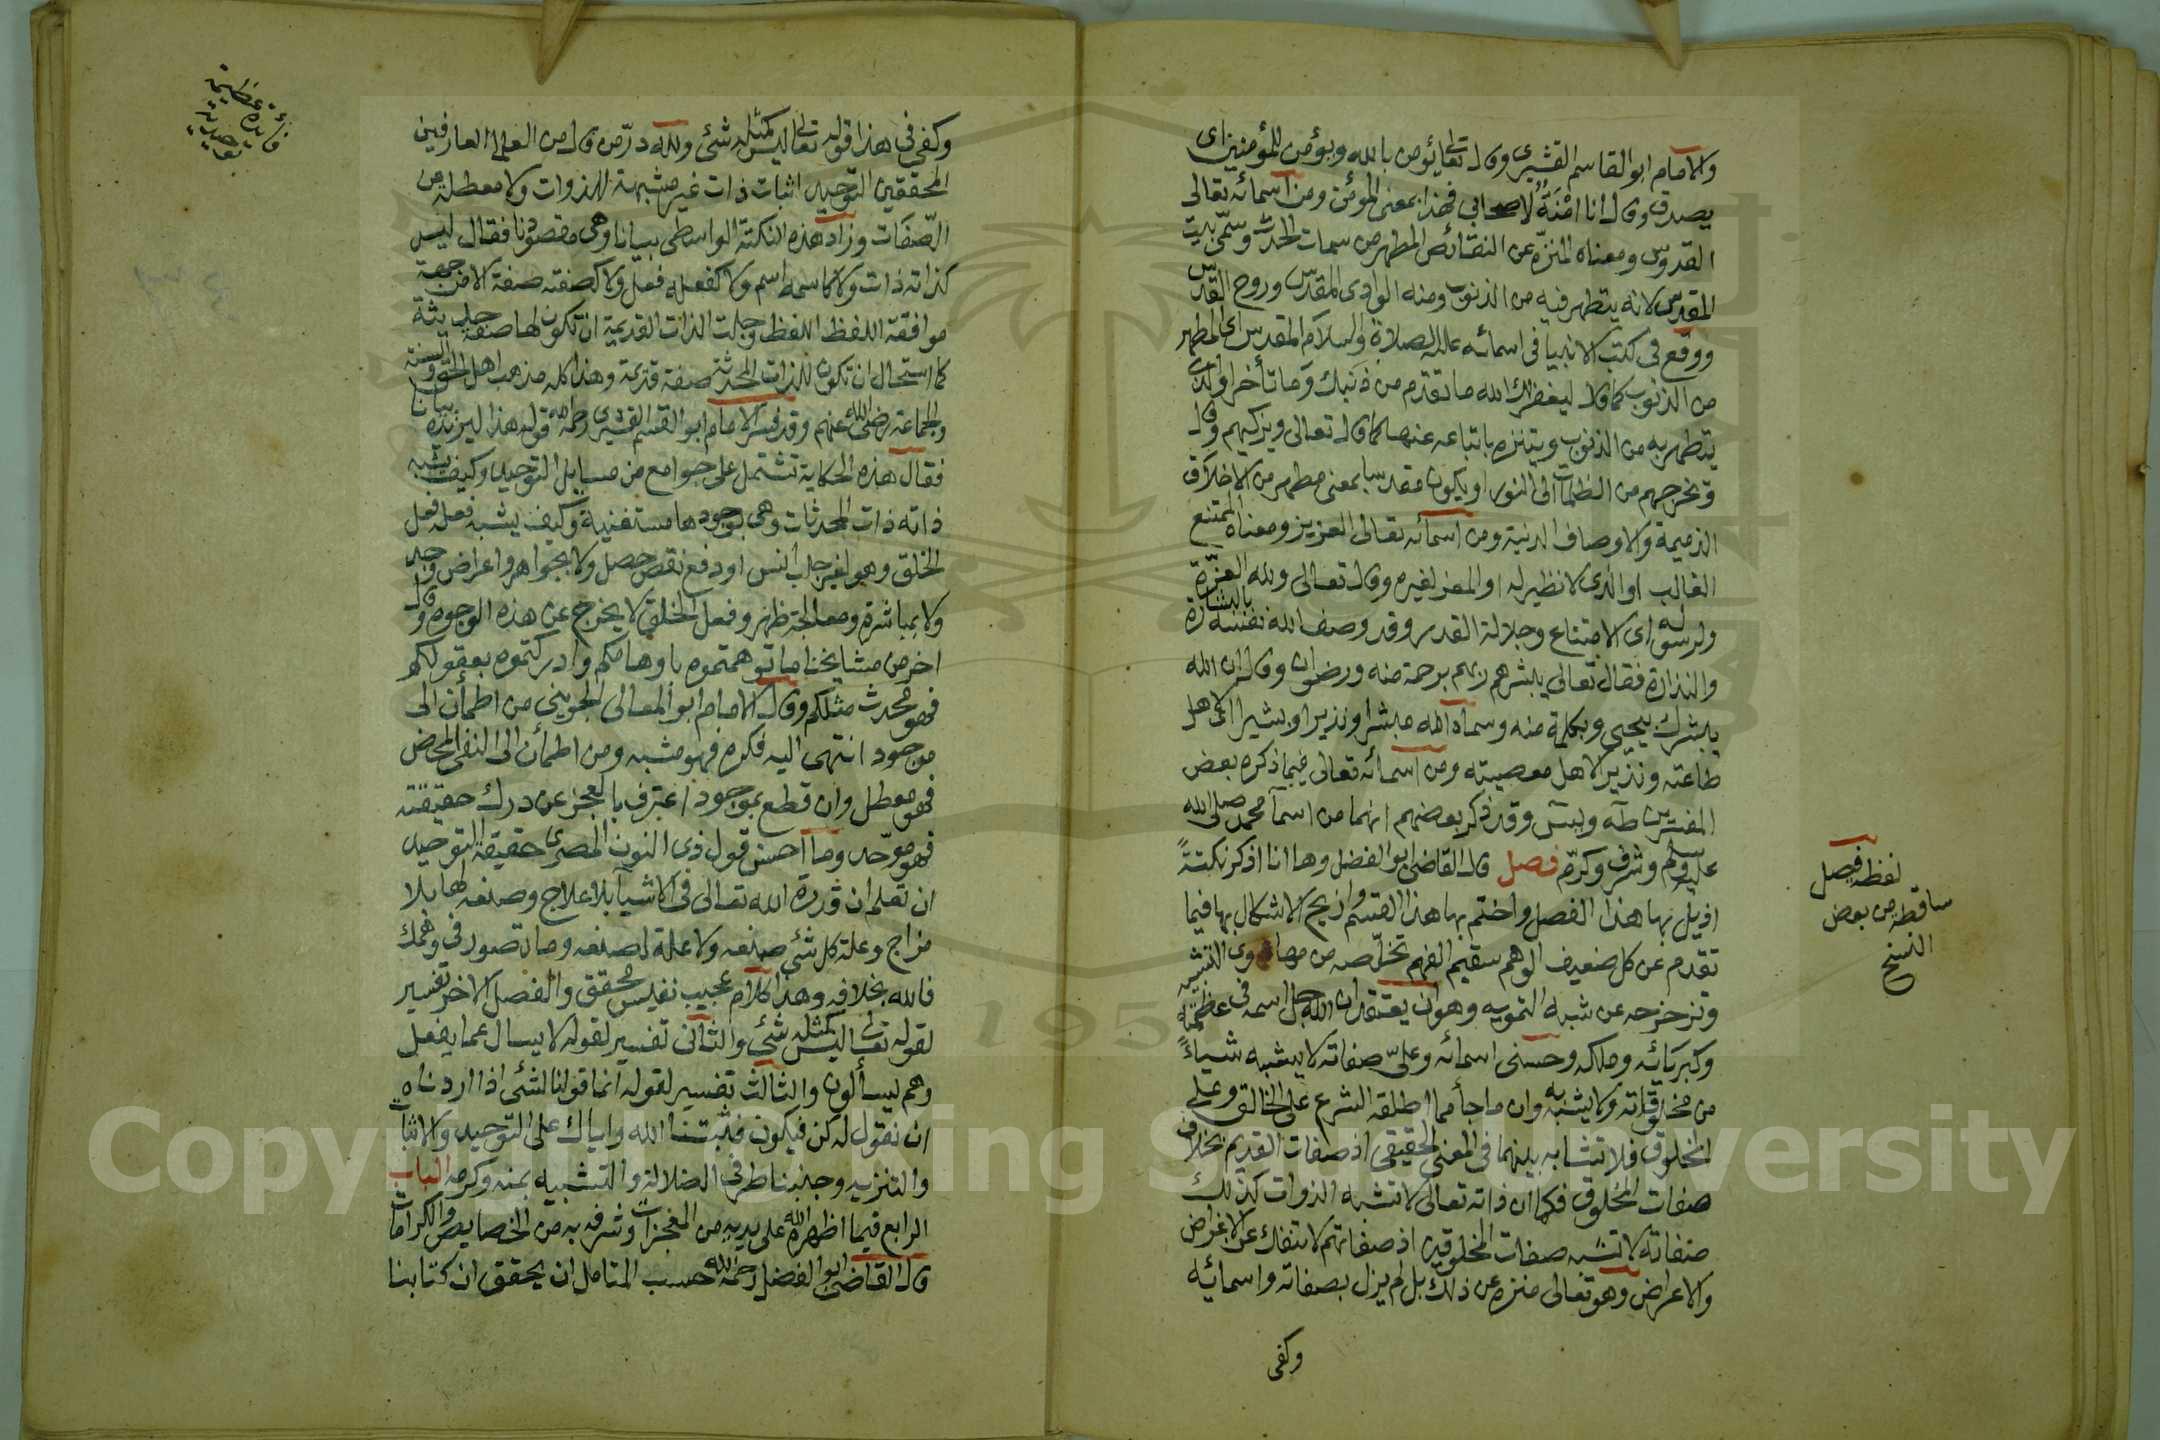 والامام ابو القاسم القشيرى وقال تعالى يؤمن بالله ويؤمن للمؤمنين اى
يصدق وقال انا امنة لاصحابي فهذا بمعنى المؤمن ومن اسمائه تعالى
القدوس ومعناه المنزه عن النقائص المطهر من سمات الحدث وسمى بيت
المقدس لانه يتطهر فيه من الذنوب ومنه الوادى المقدس وروح القدس
ووقع فى كتب الانبيا فى اسمائه عليه الصلاة والسلام المقدس اى المطهر
من الذنوب كما قال ليغفر لك الله ما تقدم من ذنبك وما تأخر او الذى
يتطهر به من الذنوب ويتنزه باتباعه عنها كما قال تعالى ويزكيهم وقال
ويخرجهم من الظلمات الى النور او يكون مقدسا بمعنى مطهر من الاخلاق
الذميمة والاوصاف الدنية ومن اسمائه تعالى العزيز ومعناه الممتنع
الغالب او الذى لا نظير له او المعز لغيره وقال تعالى ولله العزة
ولرسوله اى الامتناع وجلالة القدر وقد وصف الله نفسه بالبشارة
والنذارة فقال تعالى يبشرهم ربهم برحمة منه ورضوان وقال ان الله
يبشرك بيحيى وبكلمة منه وسماه الله مبشرا ونذيرا وبشيرا اى لاهل
طاعته ونذيرا لاهل معصيته ومن اسمائه تعالى فيما ذكره بعض
المفسرين طه ويس وقد ذكر بعضهم انهما من اسما محمد صلى الله
عليه وسلم وشرف وكرم فصل قال القاضى ابو الفضل وها انا اذكر نكتة
اذيل بها هذا الفصل واختم بها هذا القسم وازيح الاشكال بها فيما
تقدم عن كل ضعيف الوهم سقيم الفهم تخلصه من مهاوى التشبيه
وتزحزحه عن شبه التمويه وهو ان يعتقد ان الله جل اسمه فى عظمته
وكبريائه وملكه وحسنى اسمائه وعلى صفاته لا يشبه شياء
من مخلوقاته ولا يشبه به وان ما جأ مما اطلقه الشرع على الخالق وعلى
المخلوق فلا تشابه بينهما فى المعنى الحقيقى اذ صفات القديم بخلاف
صفات المخلوق فكما ان ذاته تعالى لا تشبه الذوات كذلك
صفاته لا تشبه صفات المخلوقين اذ صفاتهم لا تنفك عن الاغراض
والاعراض وهو تعالى منزه عن ذلك بل لم يزل بصفاته واسمائه
وكفى
لفظة فصل
ساقطة من بعض
النسخ
وكفى فى هذا قوله تعالى ليس كمثله شئ ولله در من قال من العلما العارفين
المحققين التوحيد اثبات ذات غير مشبهة للذوات ولا معطلة من
الصفات وزاد هذه النكتة الواسطى بيانا وهى مقصودنا فقال ليس
كذاته ذات ولا كاسمه اسم ولا كفعله فعل ولا كصفته صفة الا من جهة
موافقة اللفظ اللفظ وجلت الذات القديمة ان تكون لها صفة حديثة
كما استحال ان تكون للذات المحدثة صفة قديمة وهذا كله مذهب اهل الحق والسنة
والجماعة رضى الله عنهم وقد فسر الامام ابو القسم القشيرى رحمه الله قوله هذا ليزيده بيانا
فقال هذه الحكاية تشتمل على جوامع من مسايل التوحيد وكيف تشبه
ذاته ذات المحدثات وهى بوجودها مستغنية وكيف يشبه فعله فعل
الخلق وهو لغير جلب انس او دفع نقص حصل ولا بجواهر واعراض وجد
ولا بمباشرة ومعالجة ظهر وفعل الخلق لا يخرج عن هذه الوجوه وقال
اخر من مشايخنا ما توهمتموه باوهامكم وادركتموه بعقولكم
فهو محدث مثلكم وقال الامام ابو المعالى الجوينى من اطمأن الى
موجود انتهى اليه فكره فهو مشبه ومن اطمأن الى النفى المحض
فهو معطل وان قطع بموجود اعترف بالعجز عن درك حقيقته
فهو موحد وما احسن قول ذى النون المصرى حقيقة التوحيد
ان تعلم ان قدرة الله تعالى فى الاشيآ بلا علاج وصنعه لها بلا
مزاج وعلة كل شئ صنعه ولا علة لصنعه وما تصور فى وهمك
فالله بخلافه وهذا كلام عجيب نفيس محقق والفصل الاخر تفسير
لقوله تعالى ليس كمثله شئ والثانى تفسير لقوله لا يسال عما يفعل
وهم يسألون والثالث تفسير لقوله انما قولنا لشئ اذا اردناه
ان نقول له كن فيكون فثبتنا الله واياك على التوحيد والاثبات
والتنزيه وجنبنا طرفى الضلالة والتشبيه بمنه وكرمه الباب
الرابع فيما اظهره الله على يديه من المعجزات وشرفه به من الخصايص والكرامات
قال القاضى ابو الفضل رحمه الله حسب المتامل ان يحقق ان كتابنا
فائدة عظيمة
توحيدية
Copyright © King Saud University
195